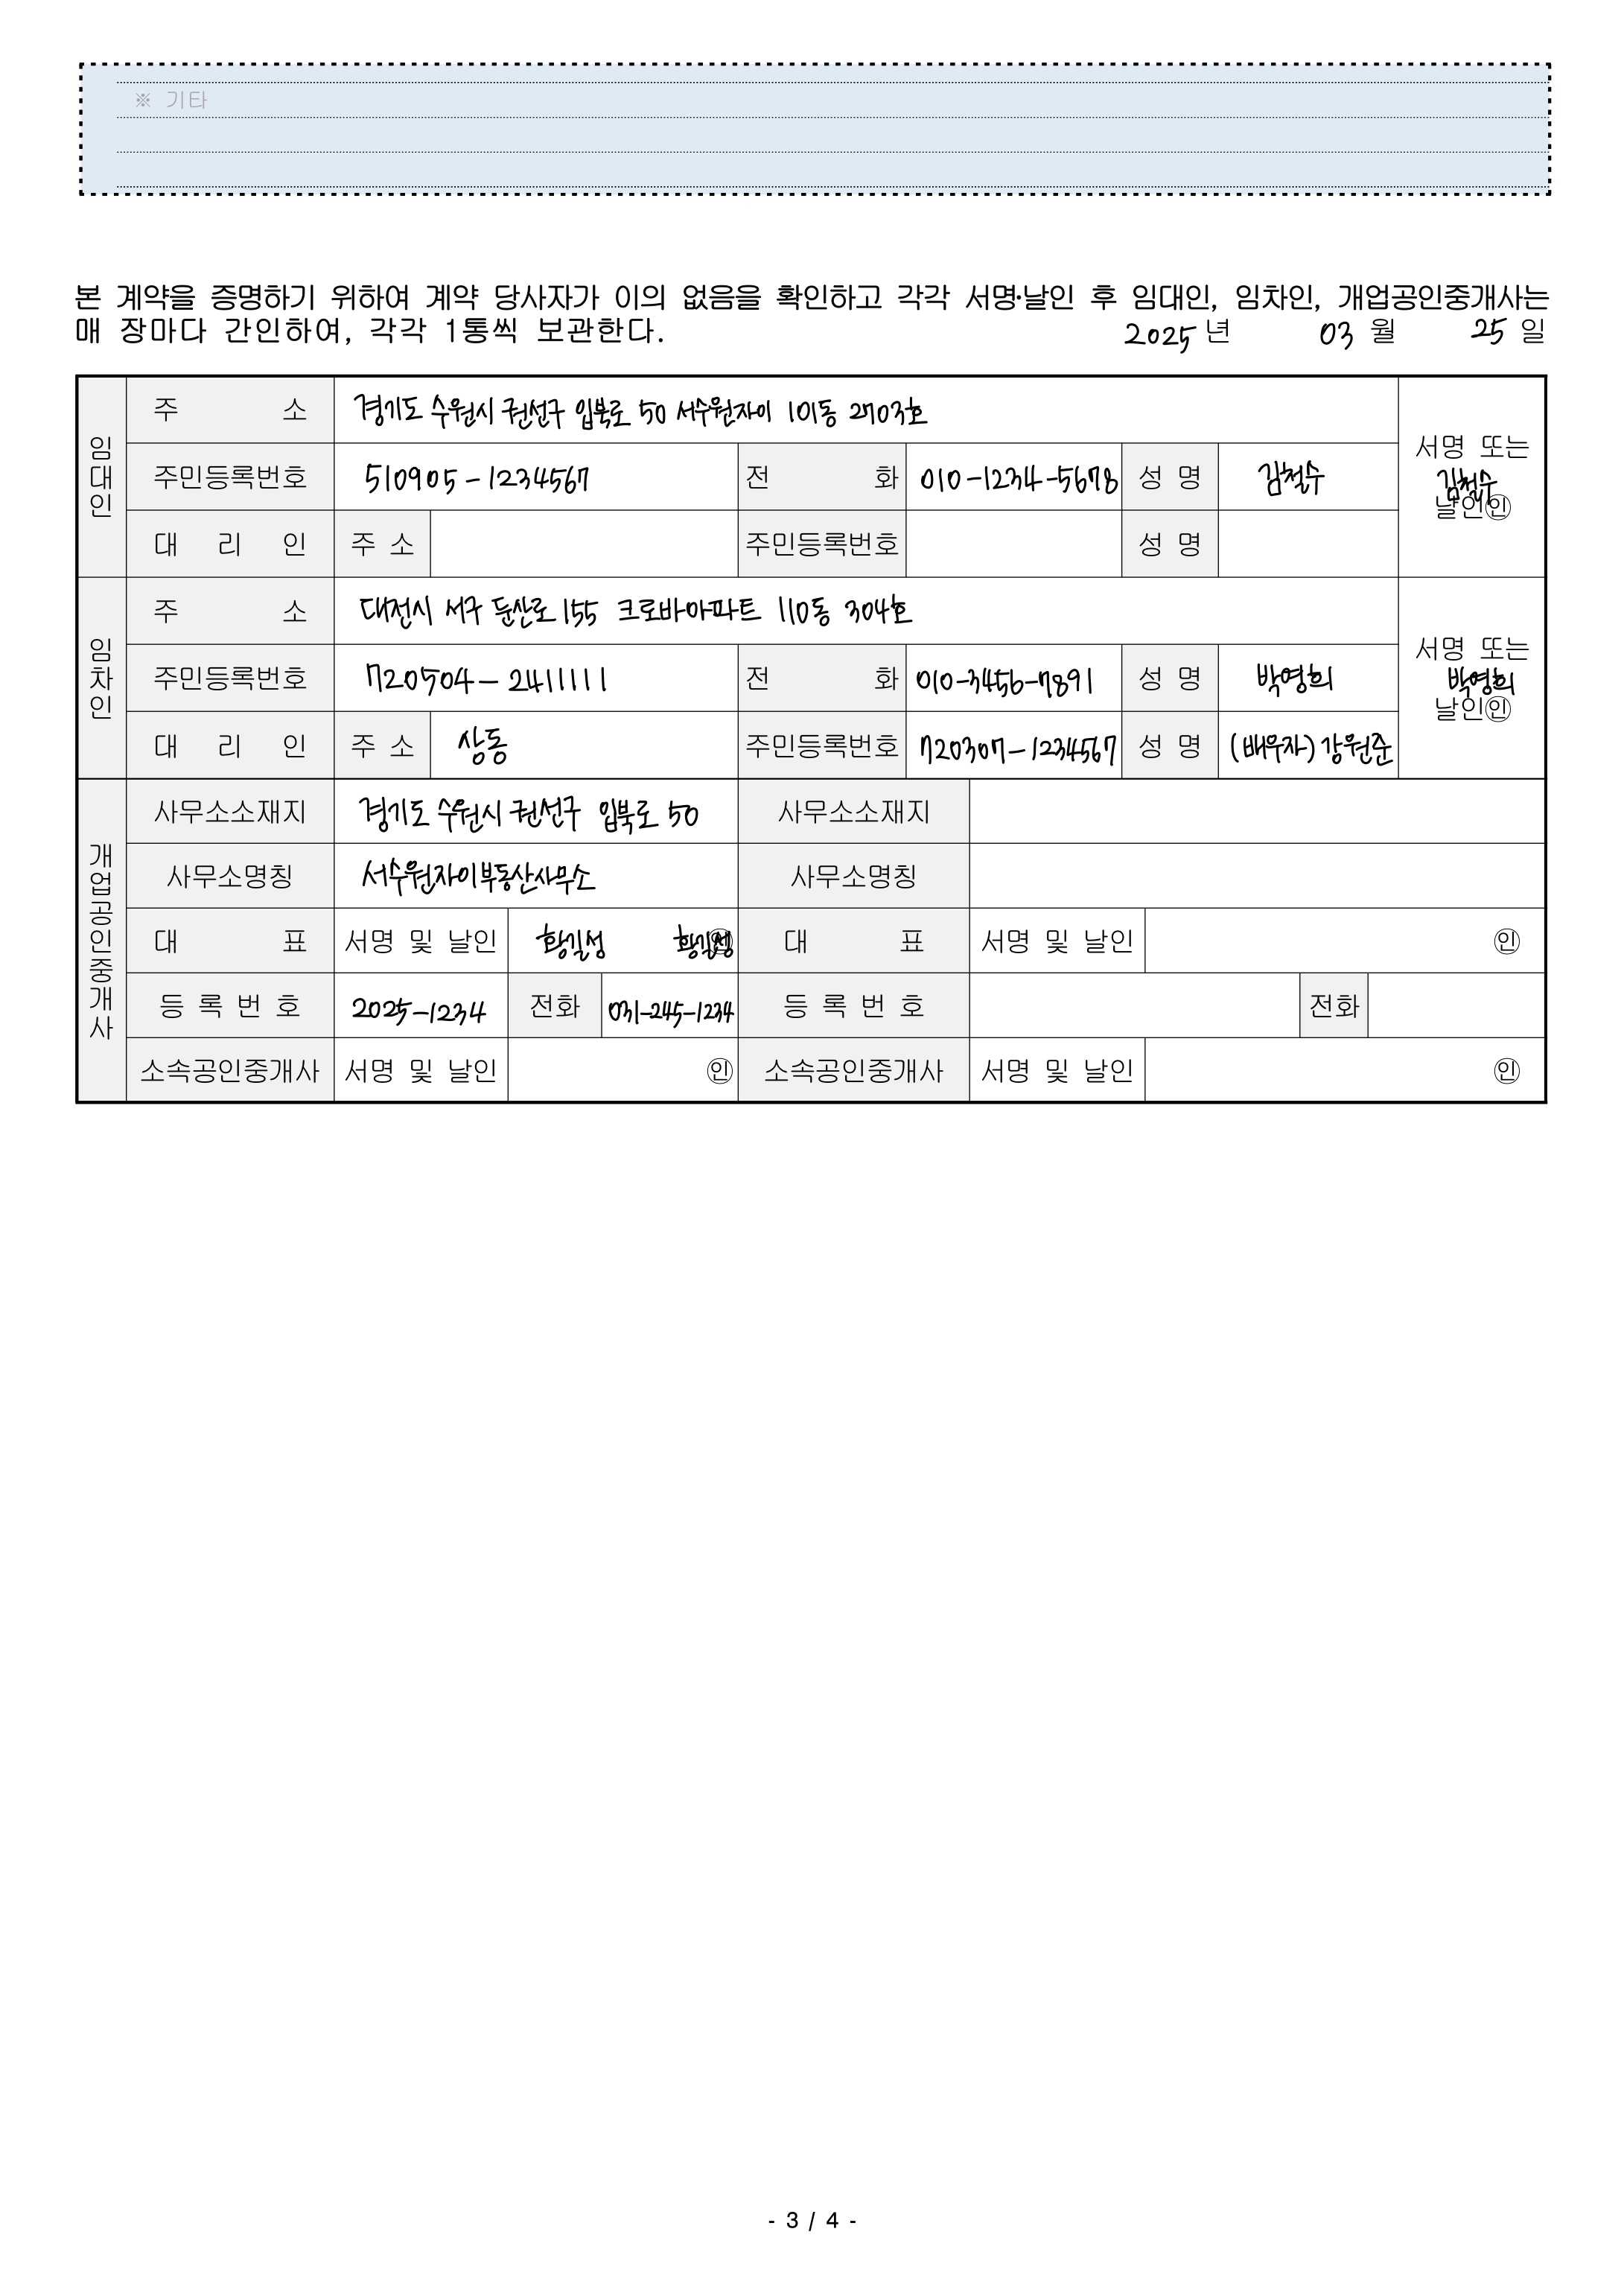 ※ 기타
본 계약을 증명하기 위하여 계약 당사자가 이의 없음을 확인하고 각각 서명·날인 후 임대인, 임차인, 개업공인중개사는
매 장마다 간인하여, 각각 1통씩 보관한다. 2025 년 03 월 25 일
임대인
주 소 경기도 수원시 권선구 입북로 50 서수원자이 101동 2703호
서명 또는
김철수
날인㊞
주민등록번호 510905-1234567 전 화 010-1234-5678 성 명 김철수
대 리 인 주 소 주민등록번호 성 명
임차인
주 소 대전시 서구 둔산로 155 크로바아파트 110동 304호
서명 또는
박영희
날인㊞
주민등록번호 720504-2411111 전 화 010-3456-7891 성 명 박영희
대 리 인 주 소 상동 주민등록번호 720307-1234567 성 명 (배우자) 강원준
개업공인중개사
사무소소재지 경기도 수원시 권선구 입북로 50 사무소소재지
사무소명칭 서수원자이부동산사무소 사무소명칭
대 표 서명 및 날인 황길성 황길성 ㊞ 대 표 서명 및 날인 ㊞
등 록 번 호 2025-1234 전화 031-245-1234 등 록 번 호 전화
소속공인중개사 서명 및 날인 ㊞ 소속공인중개사 서명 및 날인 ㊞
- 3 / 4 -